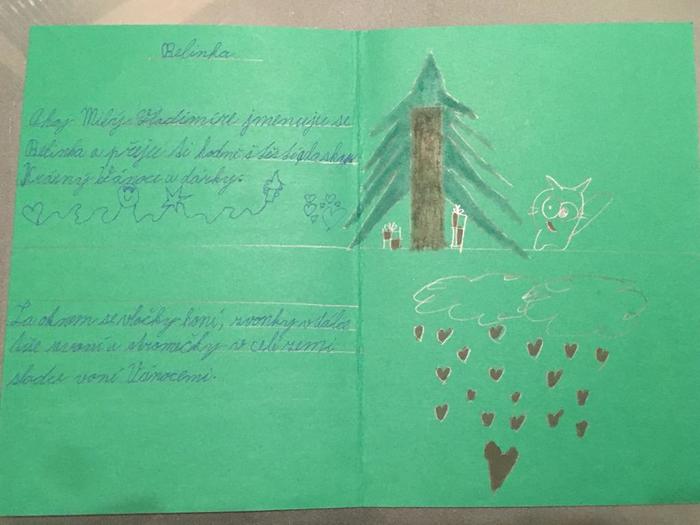 Belinka
Ahoj Milý Vladimíre jmenuju se
Belinka a přeju ti hodně štěstí a lásky
Krásný Vánoce a dárky.
Za oknem se vločky honí, zvonky v dálce
tiše zvoní a stromečky v celé zemi
sladce voní Vánocemi.